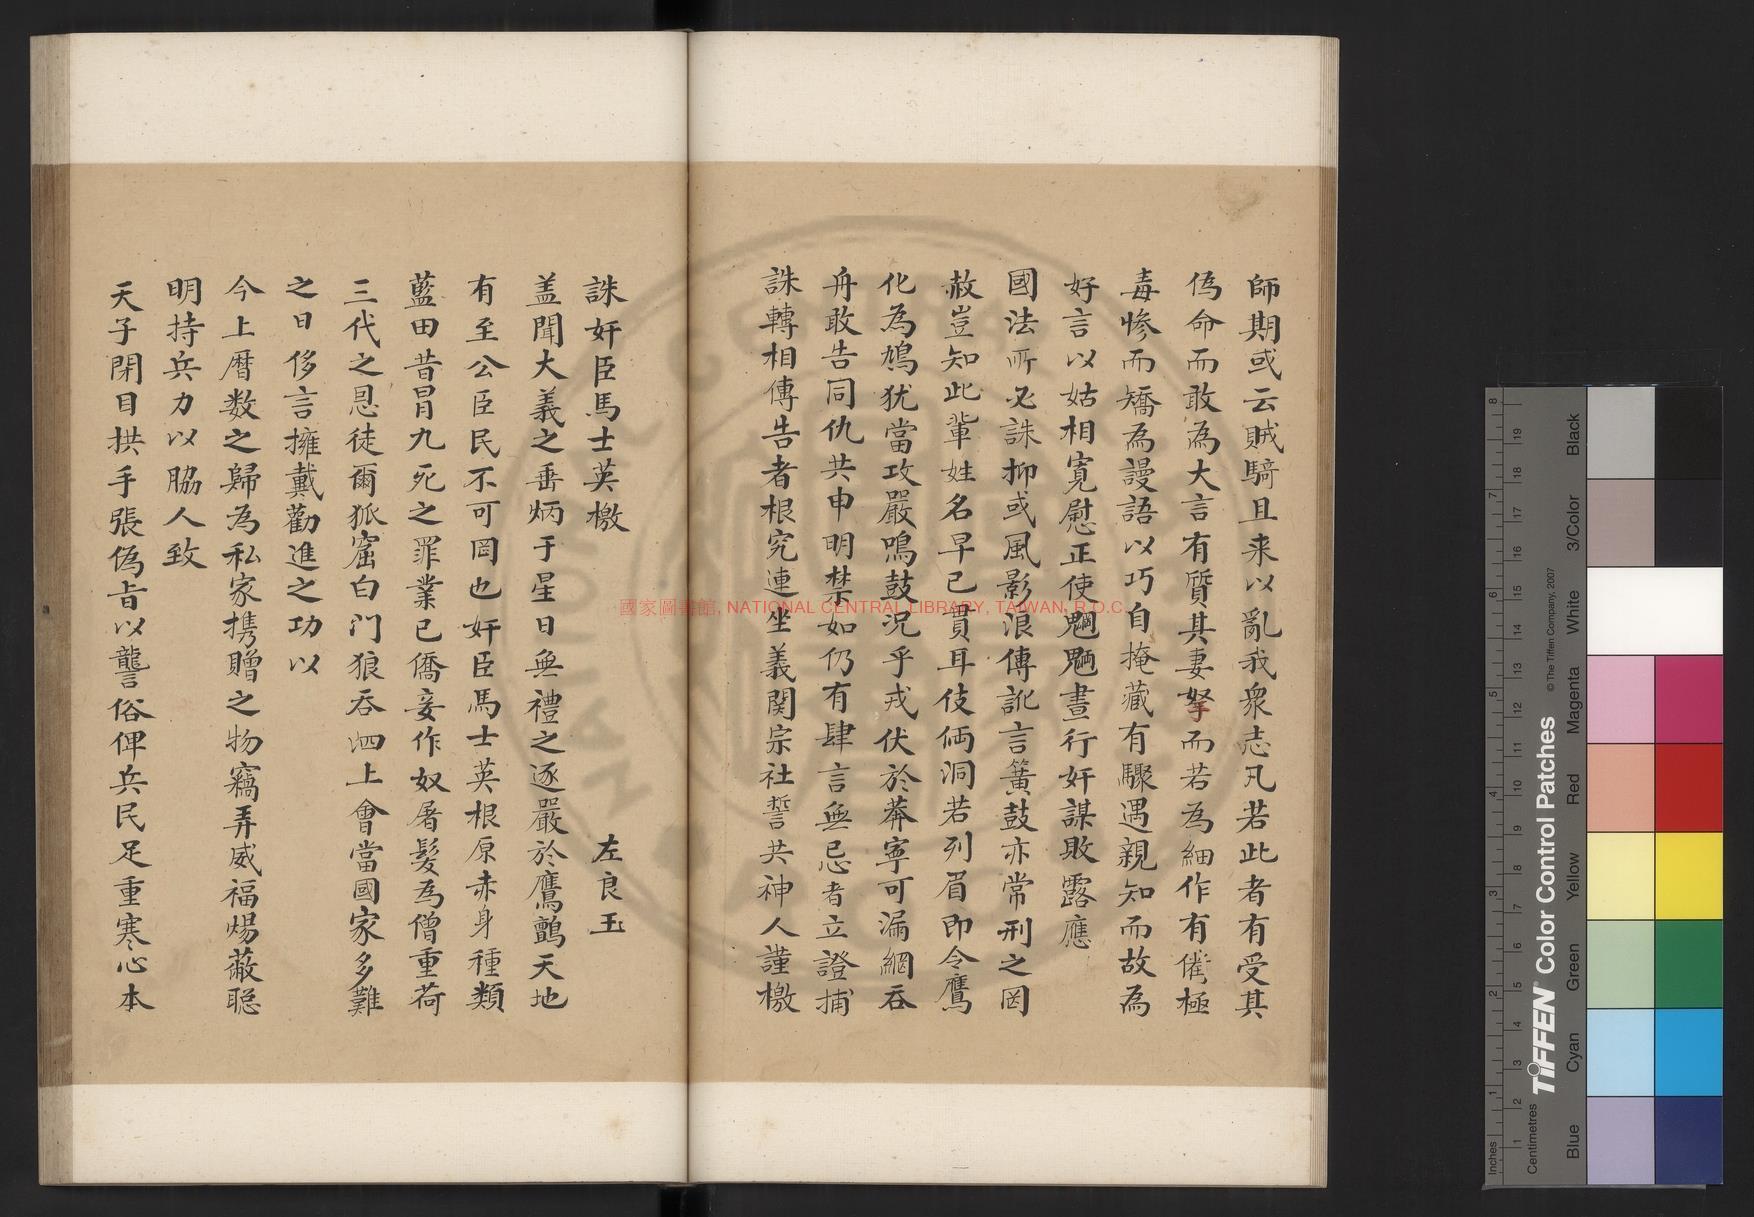 師期或云賊騎且来以亂我衆志凡若此者有受其
偽命而敢為大言有質其妻孥而若為細作有僞極
毒惨而矯為謾語以巧自掩藏有驟遇親知而故為
好言以姑相寬慰正使魍魎晝行奸謀敗露應
國法所必誅抑或風影浪傳訛言簧鼓亦常刑之罔
赦豈知此輩姓名早已貫耳伎倆洞若列眉即令鷹
化為鳩犹當攻嚴鳴鼓况乎戎伏於莽寧可漏網吞
舟敢告同仇共申明禁如仍有肆言無忌者立證捕
誅轉相傳告者根究連坐義関宗社誓共神人謹檄
誅奸臣馬士英檄 左良玉
盖聞大義之垂炳于星日無禮之逐嚴於鷹鸇天地
有至公臣民不可罔也奸臣馬士英根原赤身種類
藍田昔冒九死之罪業已僑妾作奴屠髮為僧重荷
三代之恩徒爾狐窟白门狼吞泗上會當國家多難
之日侈言擁戴勸進之功以
今上暦数之歸為私家携贈之物竊弄威福煬蔽聪
明持兵力以脇人致
天子閉目拱手張偽旨以讋俗俾兵民足重寒心本
國家圖書館, NATIONAL CENTRAL LIBRARY, TAIWAN, R.O.C.
Inches
Centimetres
TIFFEN Color Control Patches
© The Tiffen Company, 2007
Blue
Cyan
Green
Yellow
Red
Magenta
White
3/Color
Black